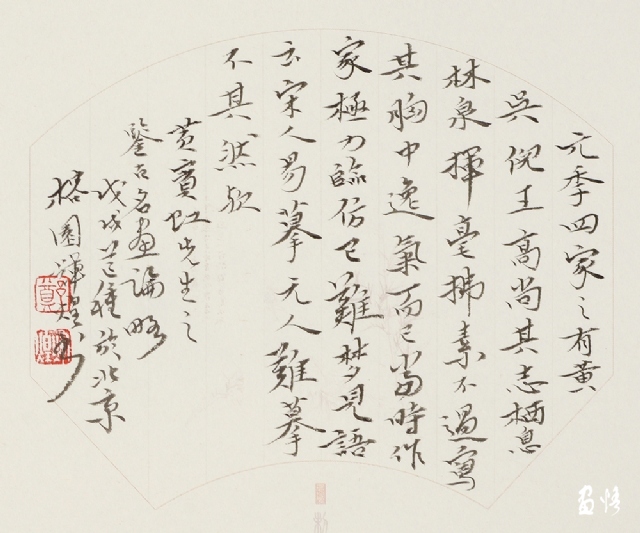 元季四家之有黄
吳倪王高尚其志栖息
林泉揮毫拂素不過寫
其胸中逸氣而已當時作
家極力臨仿已難夢見語
云宋人易摹元人難摹
不其然歟
黃賓虹先生之
鑒古名畫論略
戊戌芒種於北京
榕園